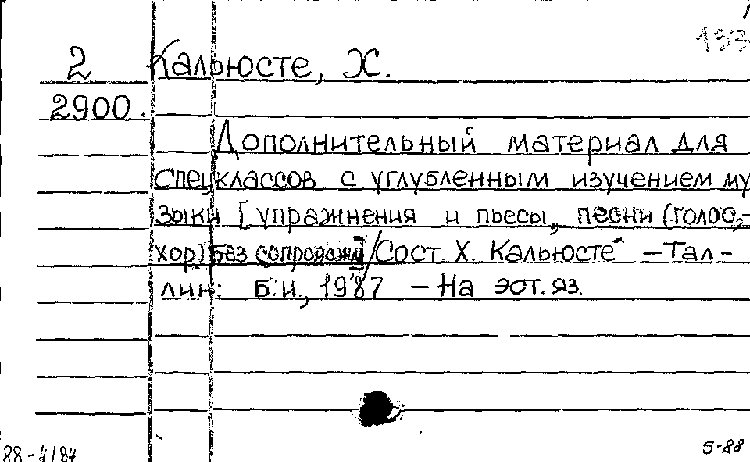 2 Кальюсте, Х.
2900.
Дополнительный материал для
спецклассов с углубленным изучением му
зыки [упражнения и пьесы, песни (голос,
хор) без сопровожд]/Сост Х. Кальюсте - Тал-
лин: Б.и., 1987 - На эст. яз.
5-88